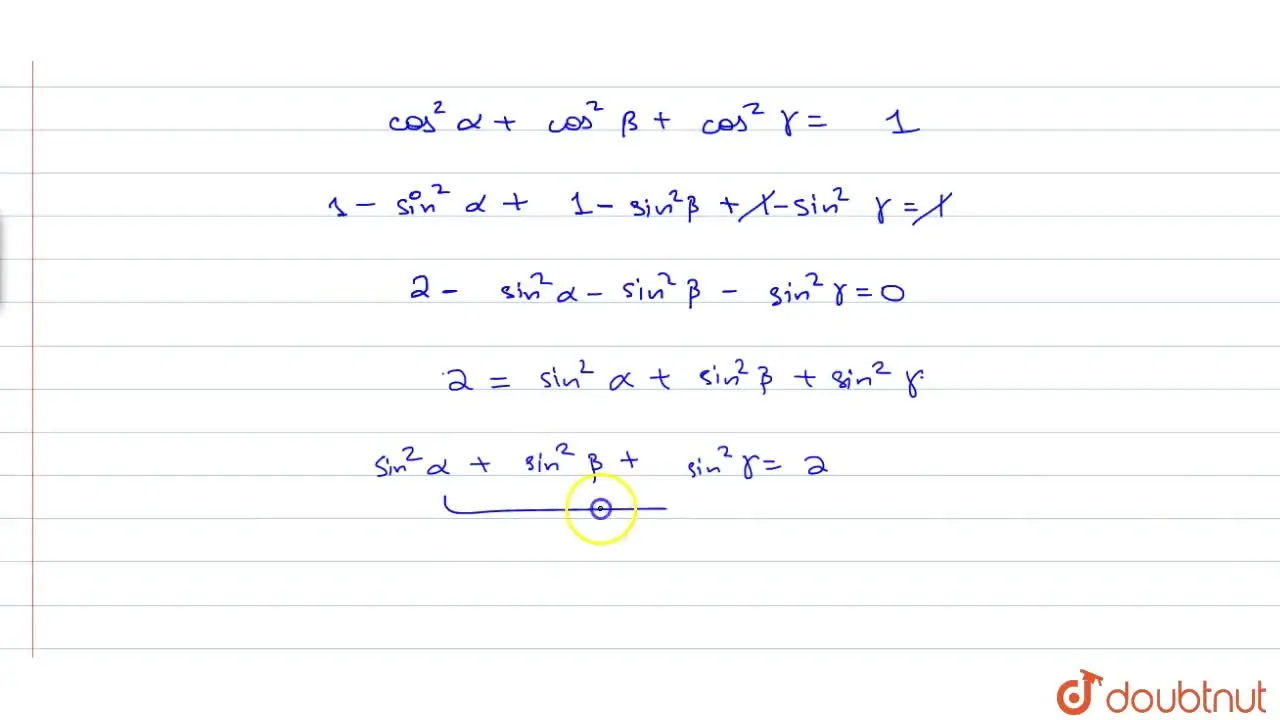 cos² α + cos² β + cos² γ = 1
1 - sin² α + 1 - sin² β + 1 - sin² γ = 1
2 - sin² α - sin² β - sin² γ = 0
2 = sin² α + sin² β + sin² γ
sin² α + sin² β + sin² γ = 2
doubtnut